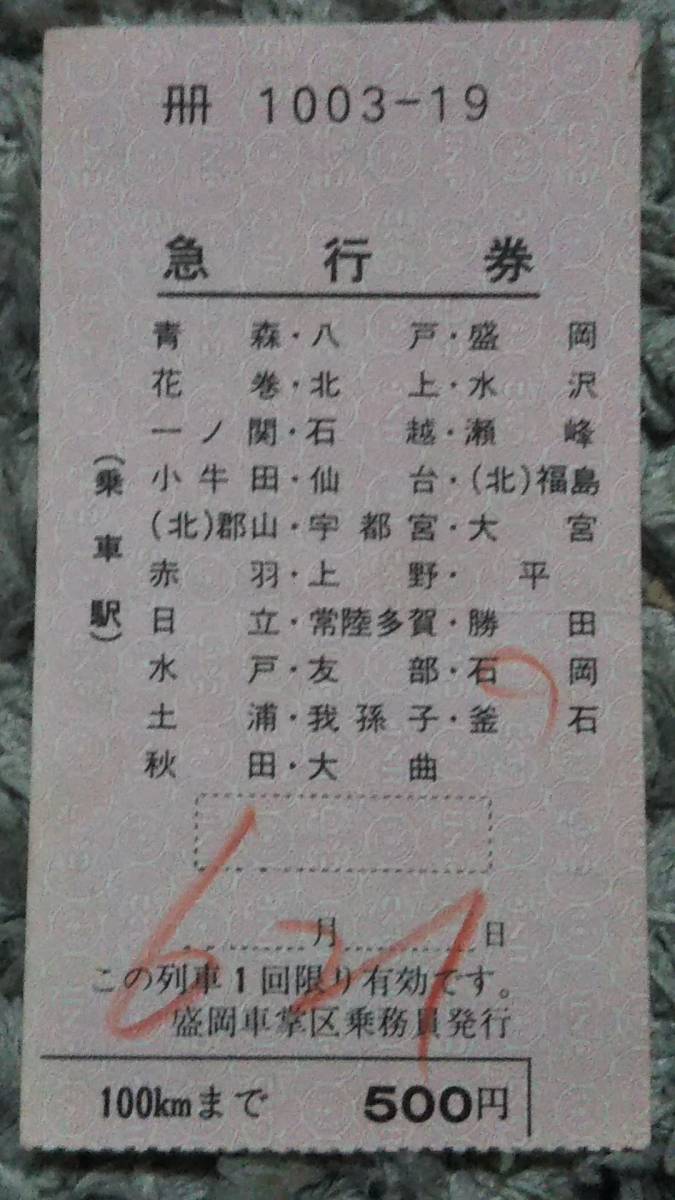 冊 1003-19
急行券
(乗車駅)
青森・八戸・盛岡
花巻・北上・水沢
一ノ関・石越・瀬峰
小牛田・仙台・(北)福島
(北)郡山・宇都宮・大宮
赤羽・上野・平
日立・常陸多賀・勝田
水戸・友部・石岡
土浦・我孫子・釜石
秋田・大曲
6 27
月 日
この列車1回限り有効です。
盛岡車掌区乗務員発行
100kmまで 500円